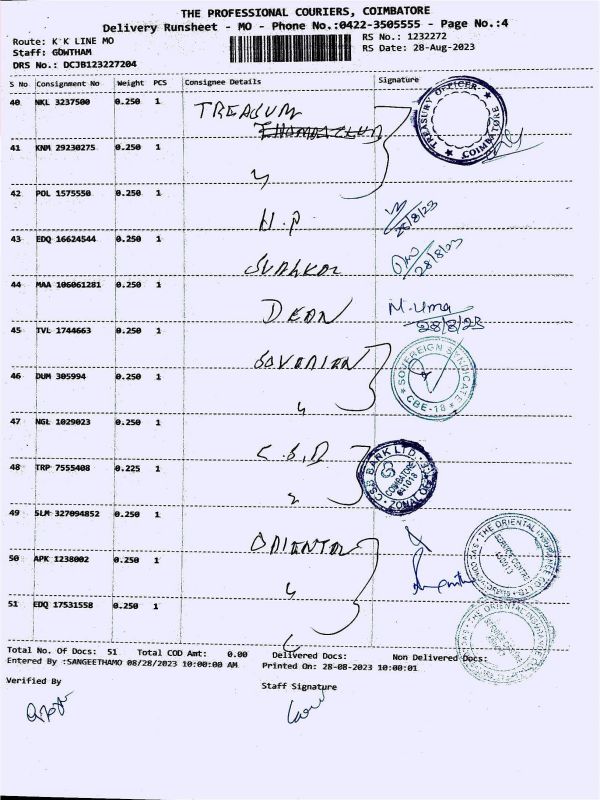 THE PROFESSIONAL COURIERS, COIMBATORE
Delivery Runsheet - MO - Phone No.:0422-3505555 - Page No.:4
Route: K K LINE MO
RS No.: 1232272
Staff: GOWTHAM
RS Date: 28-Aug-2023
DRS No.: DCJB123227204
S No Consignment No Weight PCS Consignee Details Signature
40 NKL 3237500 0.250 1 TREASUM
TREASURY OFFICER COIMBATORE
41 KNM 29230275 0.250 1 "
42 POL 1575550 0.250 1 H.P 28/8/23
43 EDQ 16624544 0.250 1 28/8/23
44 MAA 106061281 0.250 1 DEAN M.Uma 28/8/23
45 TVL 1744663 0.250 1 SOVERIEN
SOVEREIGN SYNDICATE CBE-18
46 DUM 305994 0.250 1 "
47 NGL 1029023 0.250 1 C.S.B
CSB BANK LTD. COIMBATORE 641018 ZONAL OFFICE
48 TRP 7555408 0.225 1 "
49 SLM 327094852 0.250 1 ORIENTAL
THE ORIENTAL INSURANCE CO. LTD. SERVICE CENTRE
50 APK 1238002 0.250 1 "
51 EDQ 17531558 0.250 1 "
THE ORIENTAL INSURANCE
Total No. Of Docs: 51 Total COD Amt: 0.00 Delivered Docs: Non Delivered Docs:
Entered By :SANGEETHAMO 08/28/2023 10:00:00 AM Printed On: 28-08-2023 10:00:01
Verified By Staff Signature